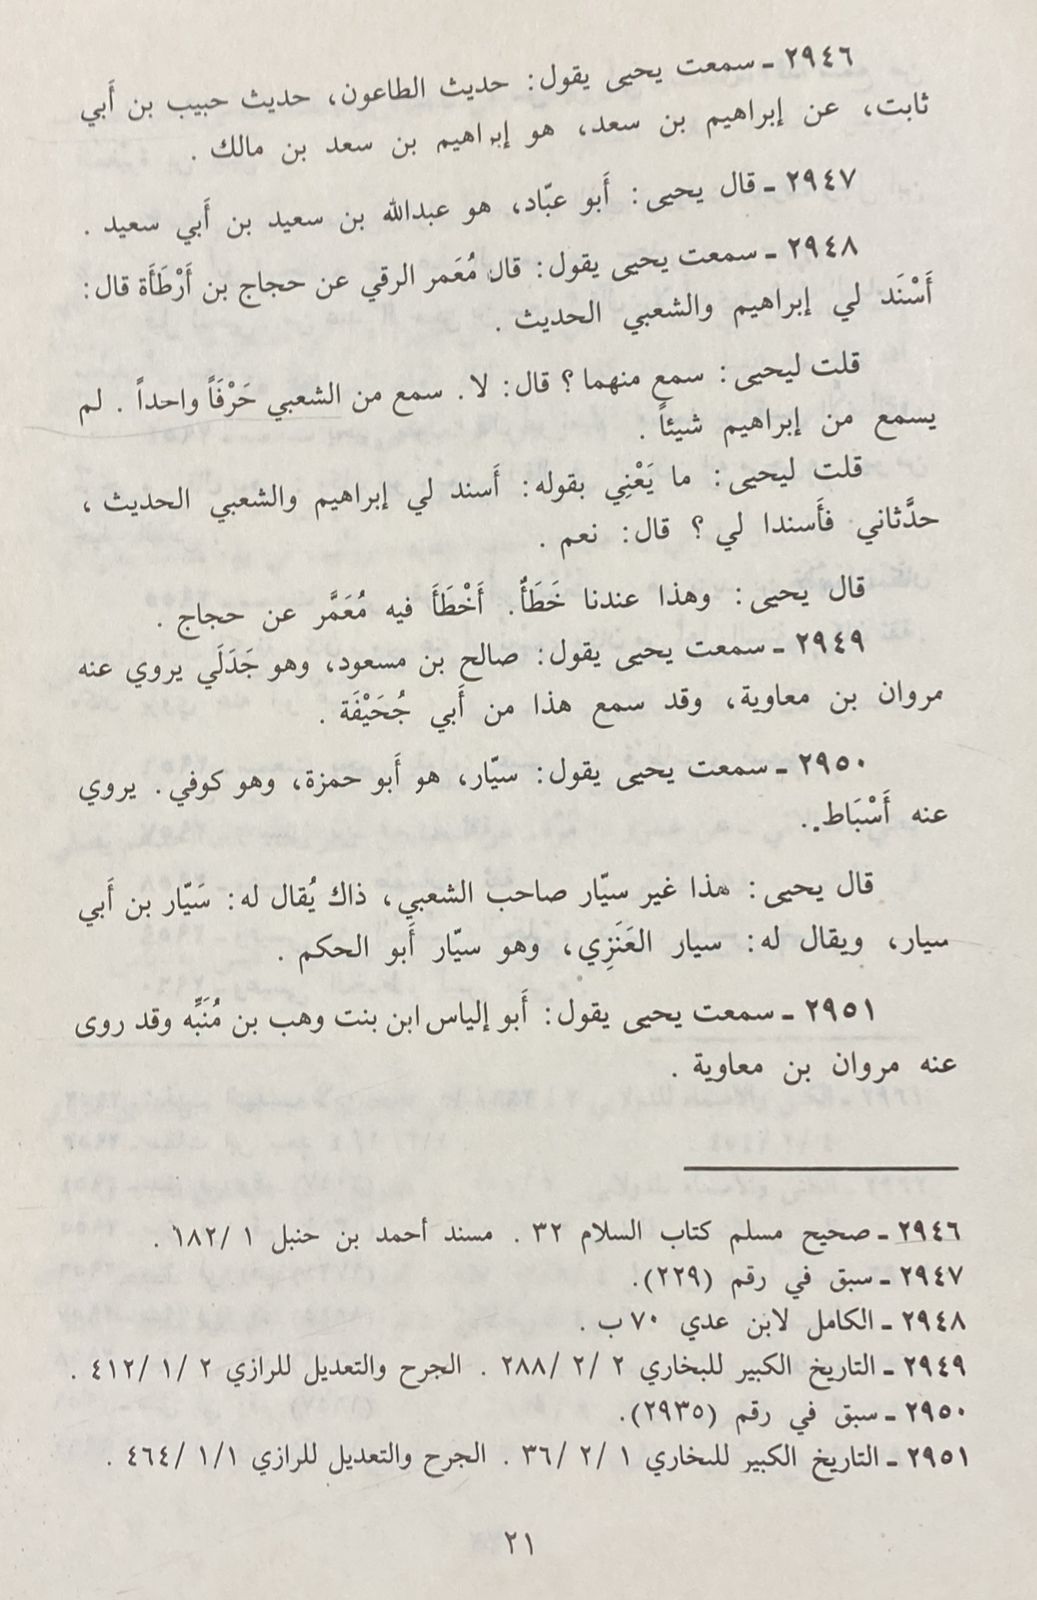 ٢٩٤٦ - سمعت يحيى يقول: حديث الطاعون، حديث حبيب بن أَبي
ثابت، عن إبراهيم بن سعد، هو إبراهيم بن سعد بن مالك .
٢٩٤٧ - قال يحيى: أَبو عبّاد، هو عبدالله بن سعيد بن أَبي سعيد .
٢٩٤٨ - سمعت يحيى يقول: قال مُعَمر الرقي عن حجاج بن أَرْطَأَة قال:
أَسْنَد لي إبراهيم والشعبي الحديث .
قلت ليحيى: سمع منهما؟ قال: لا. سمع من الشعبي حَرْفَاً واحداً . لم
يسمع من إبراهيم شيئاً .
قلت ليحيى: ما يَعْنِي بقوله: أَسند لي إبراهيم والشعبي الحديث ،
حدَّثاني فأَسندا لي؟ قال: نعم .
قال يحيى: وهذا عندنا خَطَأٌ. أَخْطَأَ فيه مُعَمَّر عن حجاج .
٢٩٤٩ - سمعت يحيى يقول: صالح بن مسعود، وهو جَدَلَي يروي عنه
مروان بن معاوية، وقد سمع هذا من أَبي جُحَيْفَة .
٢٩٥٠ - سمعت يحيى يقول: سيّار، هو أَبو حمزة، وهو كوفي. يروي
عنه أَسْبَاط..
قال يحيى: هذا غير سيّار صاحب الشعبي، ذاك يُقال له: سَيّار بن أَبي
سيار، ويقال له: سيار العَنَزِي، وهو سيّار أَبو الحكم .
٢٩٥١ - سمعت يحيى يقول: أَبو إلياس ابن بنت وهب بن مُنَبِّه وقد روى
عنه مروان بن معاوية .
٢٩٤٦ - صحيح مسلم كتاب السلام ٣٢ . مسند أحمد بن حنبل ١ /١٨٢ .
٢٩٤٧ - سبق في رقم (٢٢٩).
٢٩٤٨ - الكامل لابن عدي ٧٠ ب .
٢٩٤٩ - التاريخ الكبير للبخاري ٢ /٢ /٢٨٨ . الجرح والتعديل للرازي ٢ /١ /٤١٢ .
٢٩٥٠ - سبق في رقم (٢٩٣٥).
٢٩٥١ - التاريخ الكبير للبخاري ١ /٢ /٣٦ . الجرح والتعديل للرازي ١/١ /٤٦٤ .
٢١